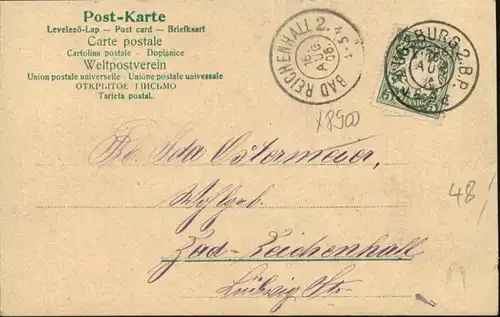 Post-Karte
Levelező-Lap — Post card — Briefkaart
Carte postale
Cartolina postale - Dopisnice
Weltpostverein
Union postale universelle - Unione postale universale
ОТКРЫТОЕ ПИСЬМО
Tarjeta postal.
BAD REICHENHALL 2.
16
AUG
06
BURG 2.B.P.
AU
x8900
Ida Ostermeier,
Wohlgeb.
Bad-Reichenhall
Ludwig Str.
48/